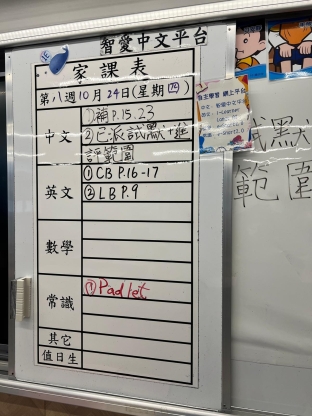 智愛中文平台
家課表
第八週10月24日(星期四)
中文
①補P.15.23
②已派試默+進
評範圍
英文
①CB P.16-17
②LB P.9
數學
常識
①Padlet
其它
值日生
自主學習 網上平台
試默
範圍